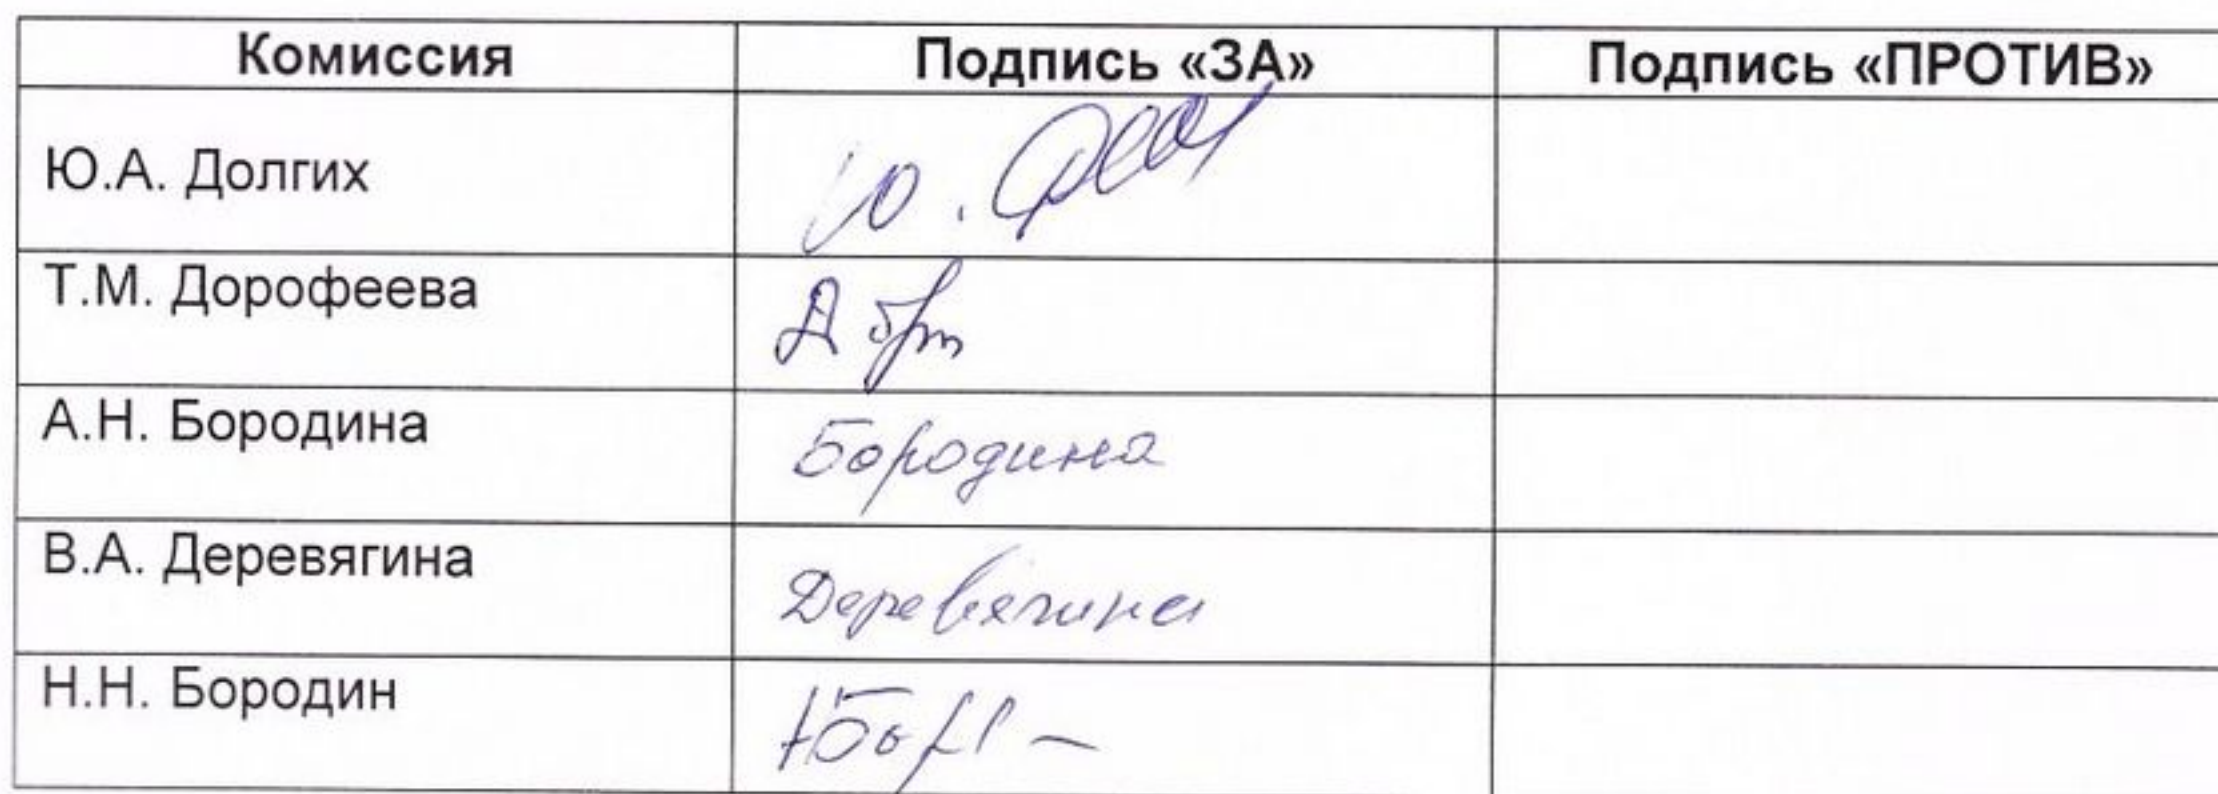 Комиссия Подпись «ЗА» Подпись «ПРОТИВ»
Ю.А. Долгих
Т.М. Дорофеева
А.Н. Бородина Бородина
В.А. Деревягина Деревягина
Н.Н. Бородин